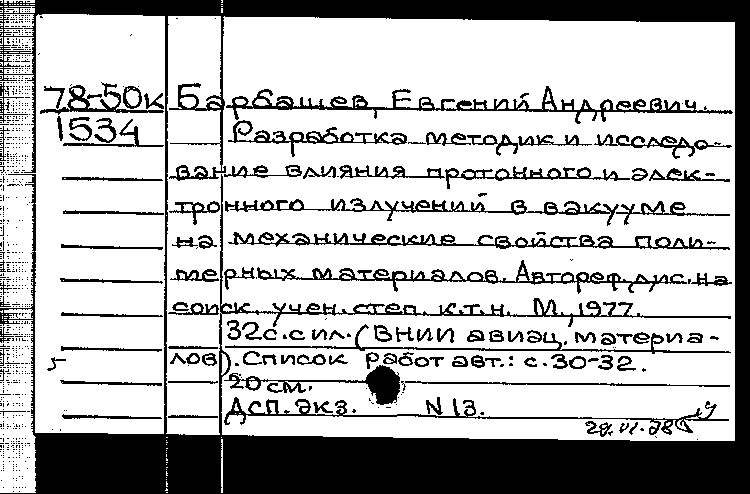 78-50к Барбашев, Евгений Андреевич.
1534 Разработка методики исследо-
вание влияния протонного и элек-
тронного излучений в вакууме
на механические свойства поли-
мерных материалов. Автореф. дис. на
соиск. учен. степ. к.т.н. М., 1977.
32с. с ил. (ВНИИ авиац. материа-
лов). Список работ авт.: с. 30-32.
20 см.
Дсп. экз. N 13.
29.VI.78